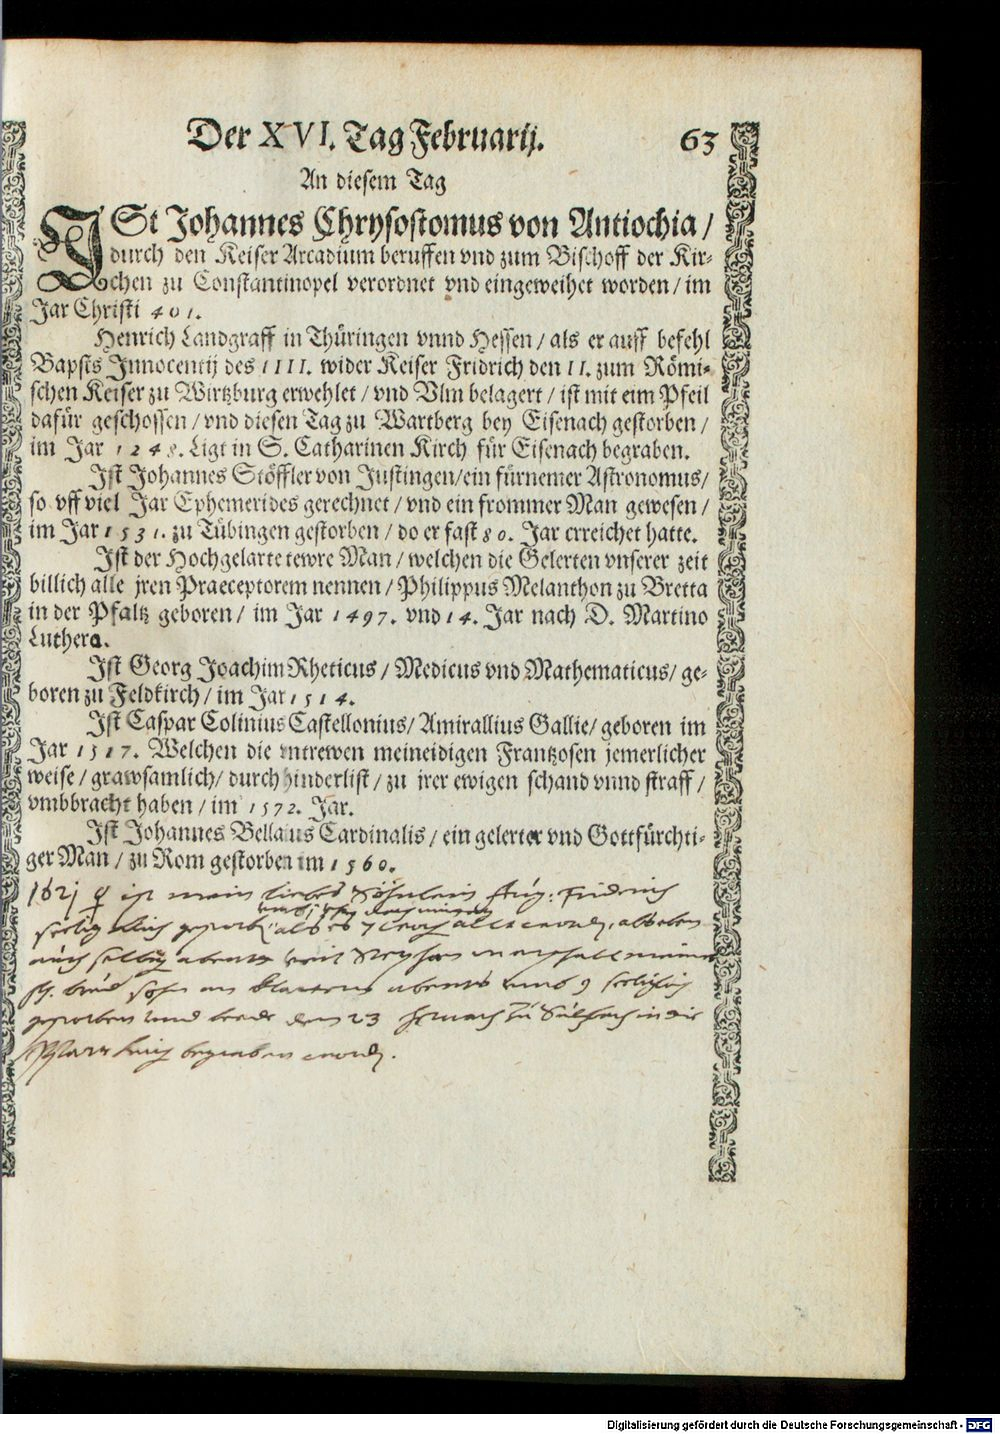 Der XVI. Tag Februarij. 63
An diesem Tag
ISt Johannes Chrysostomus von Antiochia /
durch den Keiser Arcadium beruffen vnd zum Bischoff der Kir-
chen zu Constantinopel verordnet vnd eingeweihet worden / im
Jar Christi 401.
Henrich Landgraff in Thüringen vnnd Hessen / als er auff befehl
Bapsts Innocentij des IIII. wider Keiser Fridrich den II. zum Römi-
schen Keiser zu Wirtzburg erwehlet / vnd Vlm belagert / ist mit eim Pfeil
dafür geschossen / vnd diesen Tag zu Wartberg bey Eisenach gestorben /
im Jar 1248. Ligt in S. Catharinen Kirch für Eisenach begraben.
Ist Johannes Stöffler von Justingen / ein fürnemer Astronomus /
so vff viel Jar Ephemerides gerechnet / vnd ein frommer Man gewesen /
im Jar 1531. zu Tübingen gestorben / do er fast 80. Jar erreichet hatte.
Ist der Hochgelarte tewre Man / welchen die Gelerten vnserer zeit
billich alle jren Praeceptorem nennen / Philippus Melanthon zu Bretta
in der Pfaltz geboren / im Jar 1497. vnd 14. Jar nach D. Martino
Luthero.
Ist Georg Joachim Rheticus / Medicus vnd Mathematicus / ge-
boren zu Feldkirch / im Jar 1514.
Ist Caspar Colinius Castellonius / Amirallius Gallie / geboren im
Jar 1517. Welchen die vntrewen meineidigen Frantzosen jemerlicher
weise / grawsamlich / durch hinderlist / zu jrer ewigen schand vnnd straff /
vmbbracht haben / im 1572. Jar.
Ist Johannes Bellaius Cardinalis / ein gelerter vnd Gottfürchti-
ger Man / zu Rom gestorben im 1560.
1621 ist mein liebes Söhnlein Aug: Friderich
seelig
abents vmb 9
gestorben vnd beede den 23 in die
begraben